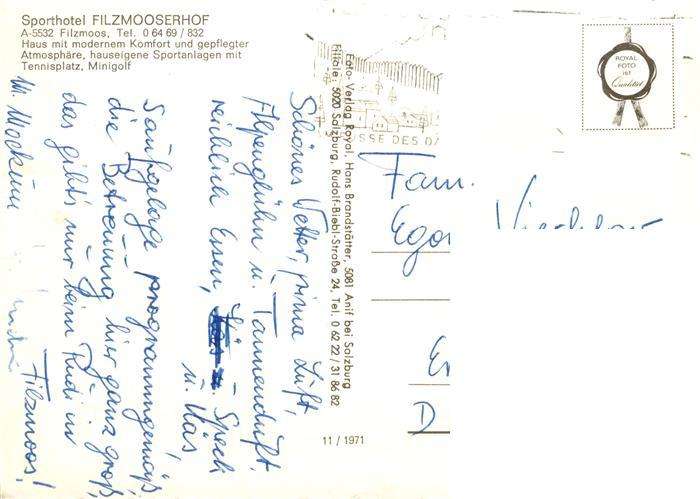 Sporthotel FILZMOOSERHOF
A-5532 Filzmoos, Tel. 0 64 69 / 832
Haus mit modernem Komfort und gepflegter
Atmosphäre, hauseigene Sportanlagen mit
Tennisplatz, Minigolf
Schönes Wetter, prima Luft,
Alpenglühn u. Tannenduft,
reichlich Essen, Speck
u. Käs
Saufgelage programmgemäß,
die Betreuung hier ganz groß,
das gibt's nur beim Rudi in
Filzmoos!
Foto-Verlag Royal, Hans Brandstätter, 5081 Anif bei Salzburg
Filiale: 5020 Salzburg, Rudolf-Biebl-Straße 24, Tel. 0 62 22 / 31 86 82
11 / 1971
SSE DES
ROYAL
FOTO
ist
Qualität
Fam.
Ego
D